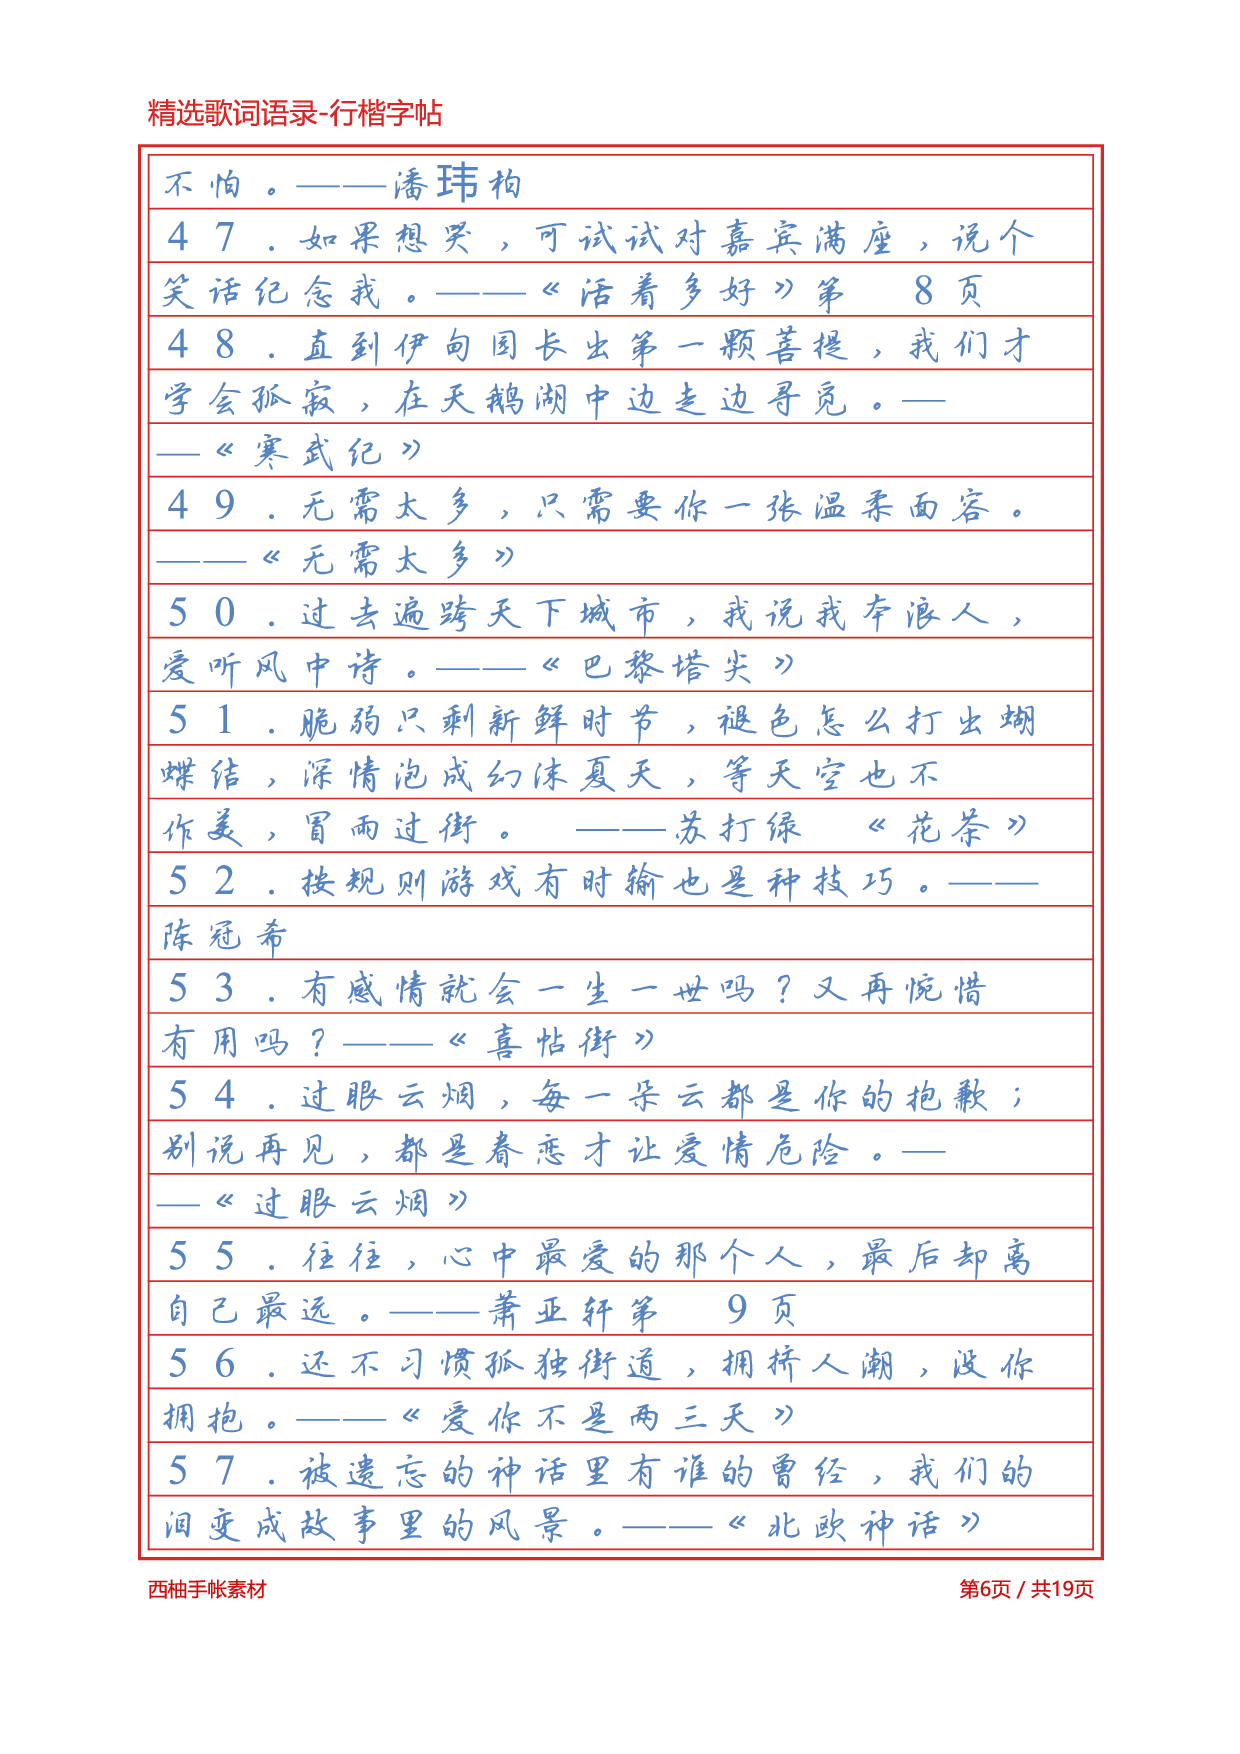 精选歌词语录-行楷字帖
不怕。——潘玮柏
47.如果想哭,可试试对嘉宾满座,说个
笑话纪念我。——《活着多好》第 8页
48.直到伊甸园长出第一颗菩提,我们才
学会孤寂,在天鹅湖中边走边寻觅。—
—《寒武纪》
49.无需太多,只需要你一张温柔面容。
——《无需太多》
50.过去遍跨天下城市,我说我本浪人,
爱听风中诗。——《巴黎塔尖》
51.脆弱只剩新鲜时节,褪色怎么打出蝴
蝶结,深情泡成幻沫夏天,等天空也不
作美,冒雨过街。 ——苏打绿 《花茶》
52.按规则游戏有时输也是种技巧。——
陈冠希
53.有感情就会一生一世吗?又再惋惜
有用吗?——《喜帖街》
54.过眼云烟,每一朵云都是你的抱歉;
别说再见,都是眷恋才让爱情危险。—
—《过眼云烟》
55.往往,心中最爱的那个人,最后却离
自己最远。——萧亚轩第 9页
56.还不习惯孤独街道,拥挤人潮,没你
拥抱。——《爱你不是两三天》
57.被遗忘的神话里有谁的曾经,我们的
泪变成故事里的风景。——《北欧神话》
西柚手帐素材
第6页 / 共19页